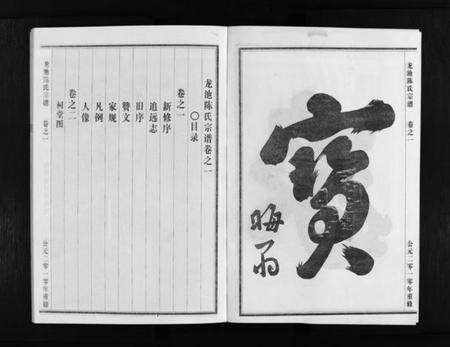 龙池陈氏宗谱 卷之一
公元二零一零年重修
寶
晦
龙池陈氏宗谱卷之一
〇目录
卷之一
新修序
追远志
旧序
赞文
家规
凡例
人像
卷之二
祠堂图
龙池陈氏宗谱 卷之一
公元二零一零年重修